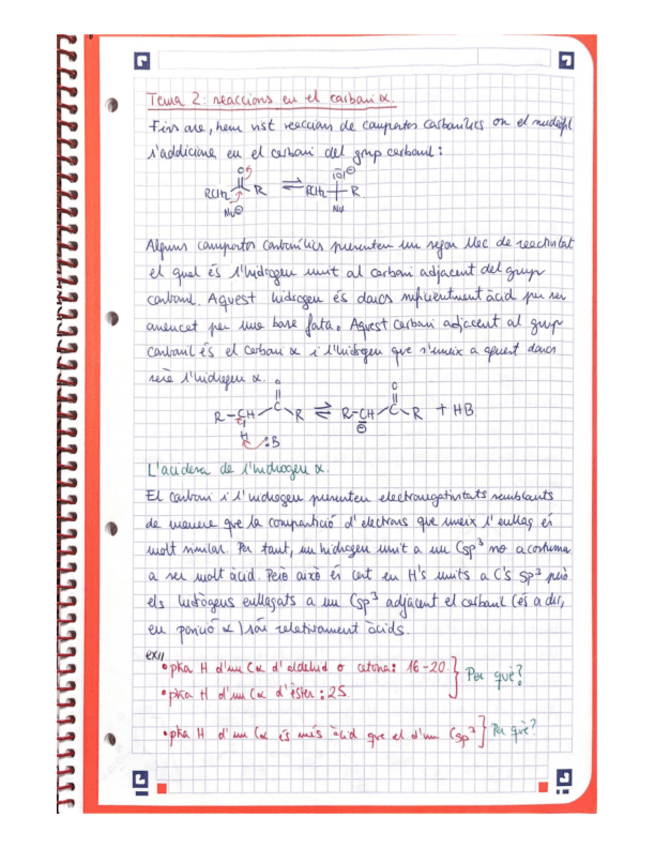 Tema 2: reaccions en el carboni α.
Fins ara, hem vist reaccions de compostos carbonílics on el nucleòfil
s'addiciona en el carboni del grup carbonil:
O
RCH₂ R ⇌ RCH₂ R
|O|⊖
Nu⊖ Nu
Alguns compostos carbonílics presenten un segon lloc de reactivitat
el qual és l'hidrogen unit al carboni adjacent del grup
carbonil. Aquest hidrogen és doncs suficientment àcid per ser
arrencat per una base forta. Aquest carboni adjacent al grup
carbonil és el carboni α i l'hidrogen que s'uneix a aquest doncs
serà l'hidrogen α.
O O
R-CH-C-R ⇌ R-CH-C-R + HB
H :B ⊖
L'acidesa de l'hidrogen α.
El carboni i l'hidrogen presenten electronegativitats semblants
de manera que la compartició d'electrons que uneix l'enllaç és
molt similar. Per tant, un hidrogen unit a un Csp³ no acostuma
a ser molt àcid. Però això és cert en H's units a C's sp³ però
els hidrògens enllaçats a un Csp³ adjacent el carbonil (és a dir,
en posició α) són relativament àcids.
ex//
• pka H d'un Cα d'aldehid o cetona: 16-20 } Per què?
• pka H d'un Cα d'èster: 25
• pka H d'un Cα és més àcid que el d'un Csp³ } Per què?